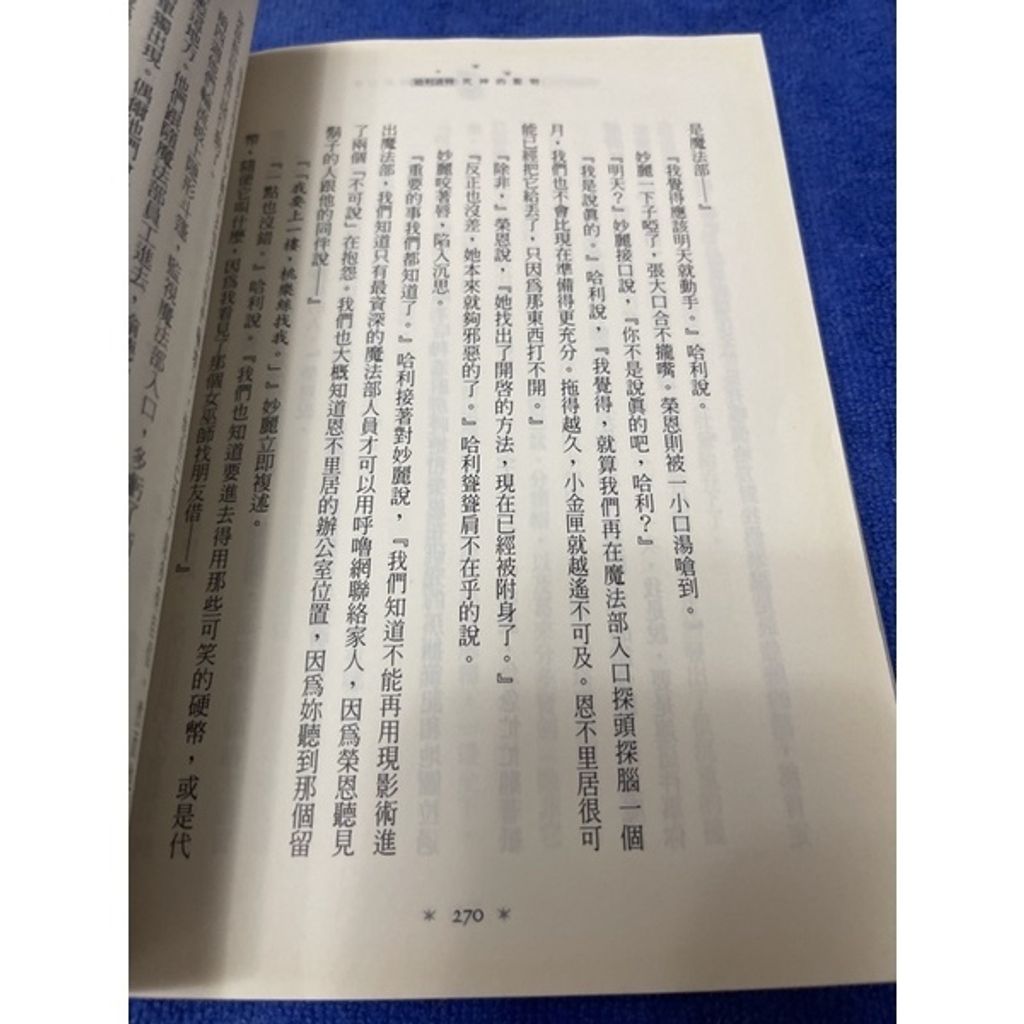 哈利波特 死神的聖物
是魔法部——』
『我覺得應該明天就動手。』哈利說。
妙麗一下子啞了，張大口合不攏嘴。榮恩則被一小口湯嗆到。
『明天？』妙麗接口說，『你不是說真的吧，哈利？』
『我是說真的。』哈利說，『我覺得，就算我們再在魔法部入口探頭探腦一個
月，我們也不會比現在準備得更充分。拖得越久，小金匣就越遙不可及。恩不里居很可
能已經把它給丟了，只因為那東西打不開。』
『除非，』榮恩說，『她找出了開啓的方法，現在已經被附身了。』
『反正也沒差，她本來就夠邪惡的了。』哈利聳聳肩不在乎的說。
妙麗咬著唇，陷入沉思。
『重要的事我們都知道了。』哈利接著對妙麗說，『我們知道不能再用現影術進
出魔法部，我們知道只有最資深的魔法部人員才可以用呼嚕網聯絡家人，因為榮恩聽見
了兩個『不可說』在抱怨。我們也大概知道恩不里居的辦公室位置，因為妳聽到那個留
鬍子的人跟他的同伴說——』
『「我要上一樓，桃樂絲找我。」』妙麗立即複述。
『一點也沒錯。』哈利說。『我們也知道要進去得用那些可笑的硬幣，或是代
幣，隨便它叫什麼，因為我看見了那個女巫師找朋友借——』
270